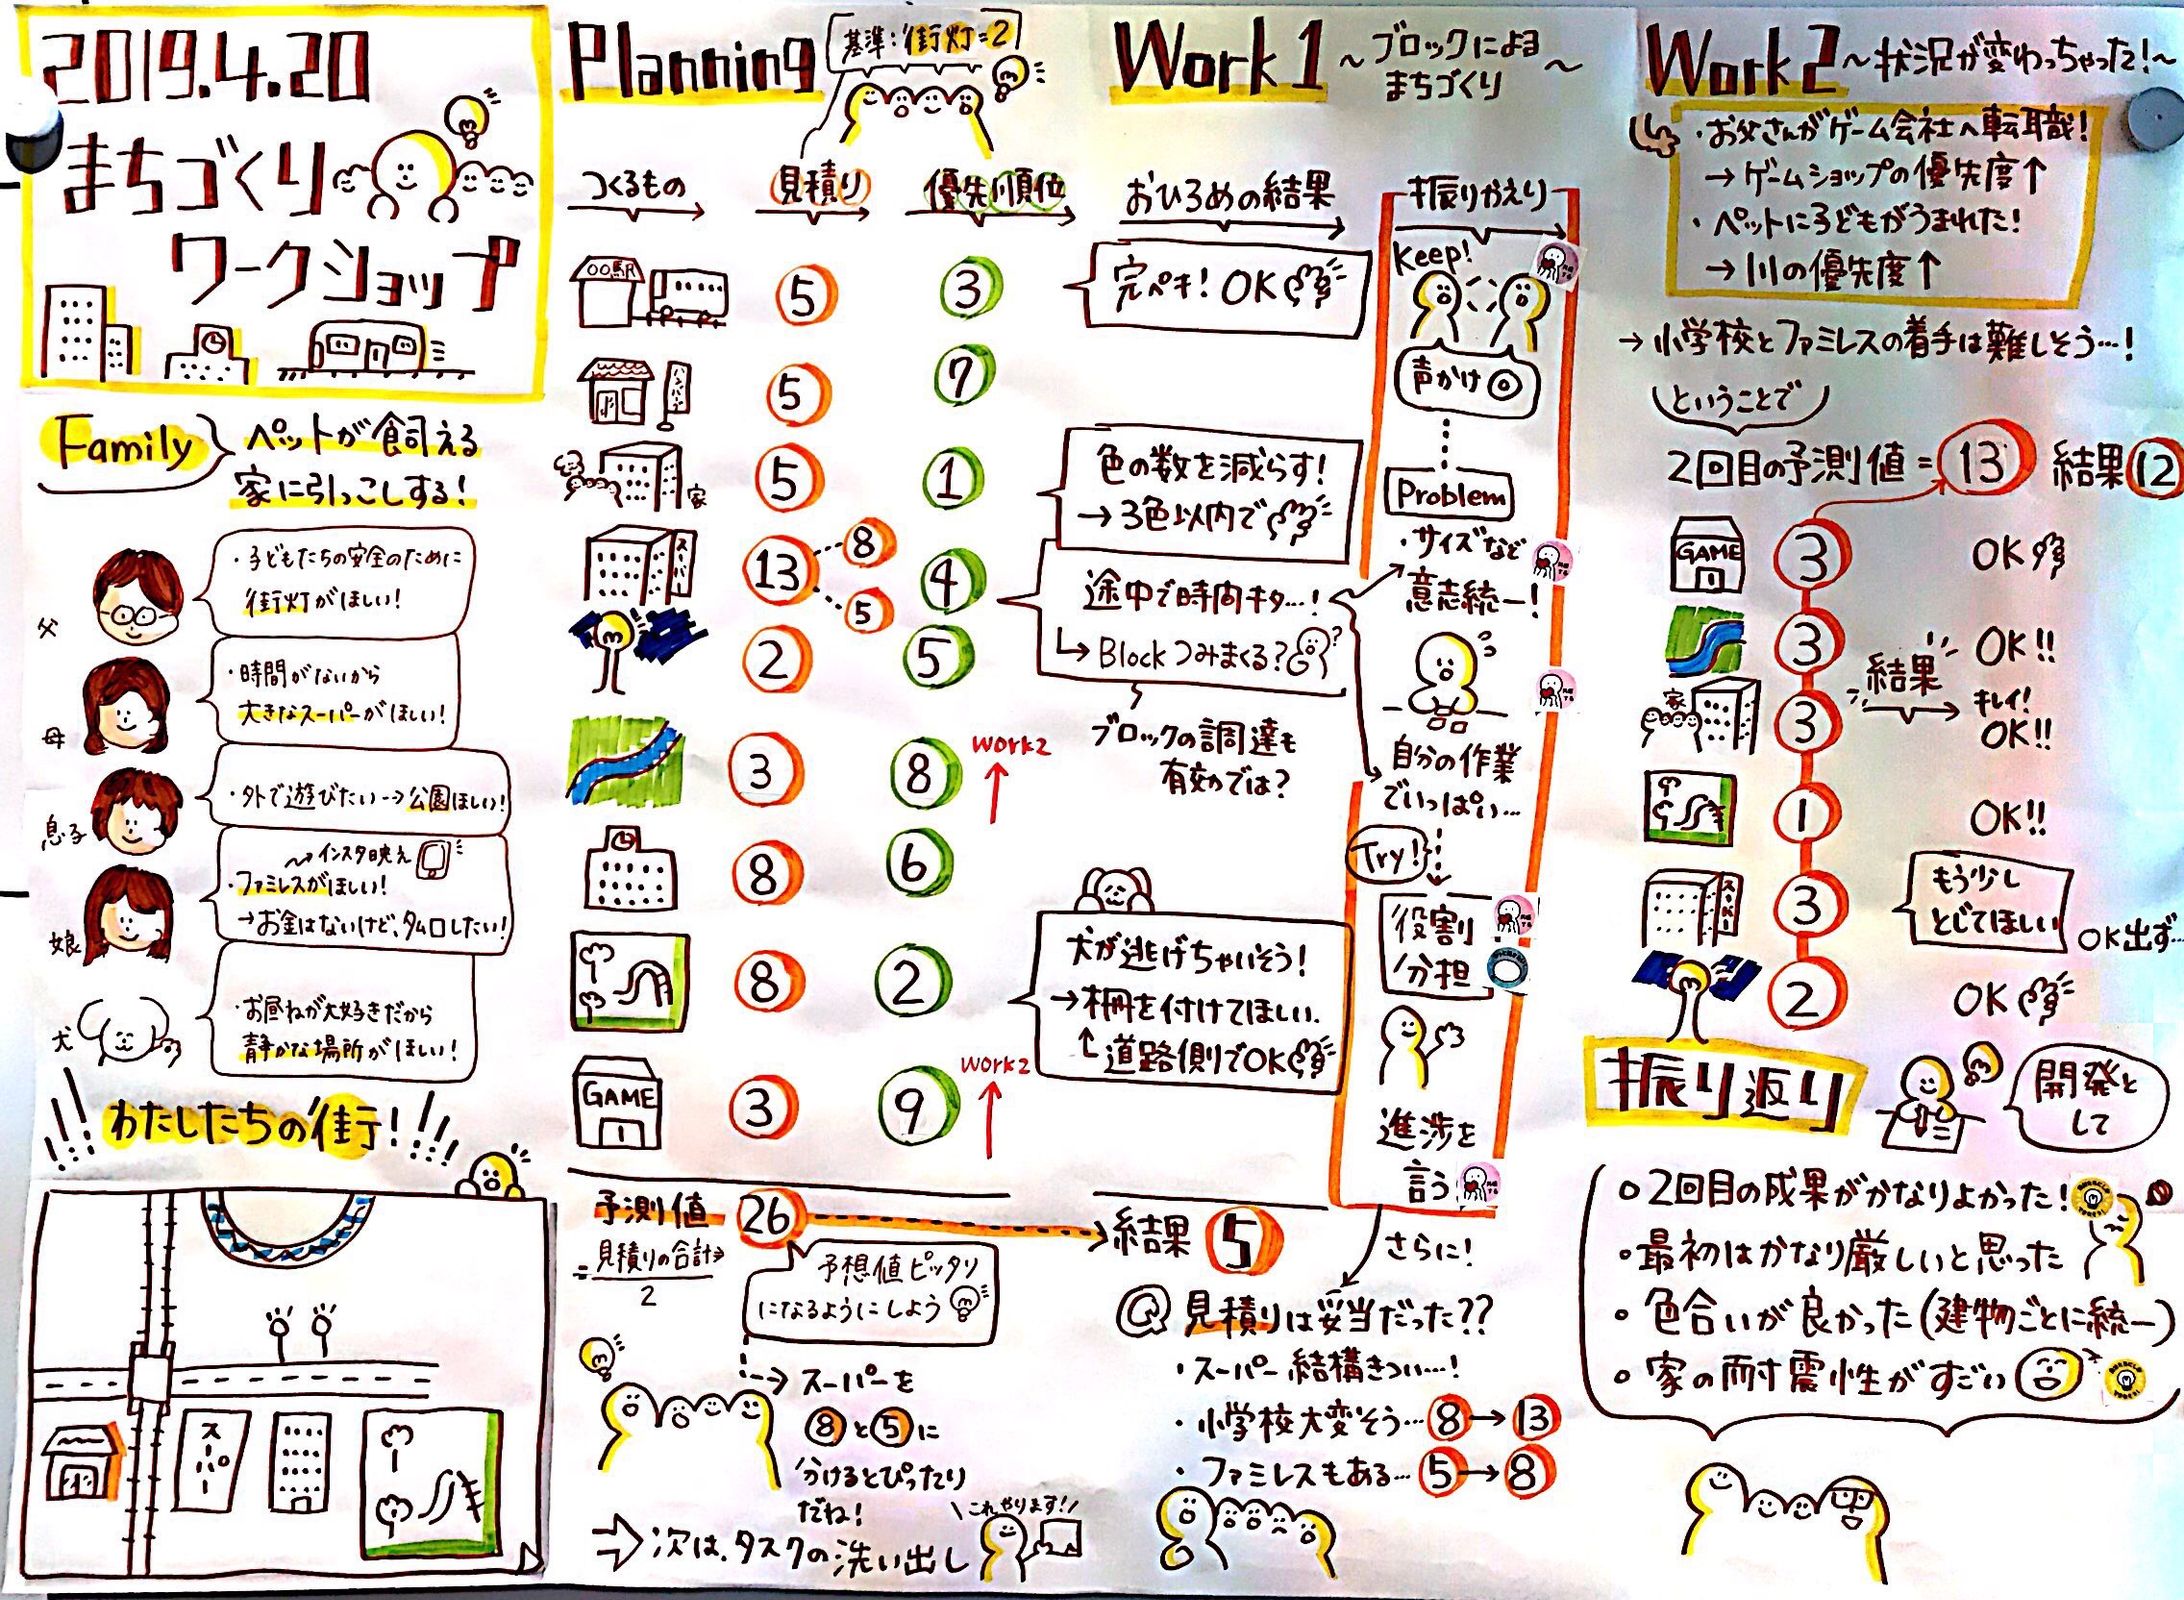 2019.4.20
まちづくり
ワークショップ
Family
ペットが飼える
家に引っこしする!
父
・子どもたちの安全のために
街灯がほしい!
母
・時間がないから
大きなスーパーがほしい!
息子
・外で遊びたい→公園ほしい!
娘
インスタ映え
・ファミレスがほしい!
→お金はないけど、タムロしたい!
犬
・お昼ねが大好きだから
静かな場所がほしい!
わたしたちの街!
スーパー
Planning
基準:街灯=2
つくるもの
見積り
優先順位
〇〇駅
5
3
ハンバーグ
5
7
家
5
1
スーパー
13
8
5
4
2
5
3
8
work2
8
6
8
2
GAME
3
9
work2
予測値
26
=見積りの合計
2
予想値ピッタリ
になるようにしよう
スーパーを
8と5に
分けるとぴったり
だね!
⇒次は、タスクの洗い出し
これやります!
Work1
〜ブロックによる
まちづくり〜
おひろめの結果
完ペキ!OK
色の数を減らす!
→3色以内で
途中で時間キタ…!
↳Blockつみまくる?
?
ブロックの調達も
有効では?
犬が逃げちゃいそう!
→柵を付けてほしい.
道路側でOK
振りかえり
Keep!
声かけ◎
Problem
・サイズなど
意志統一!
自分の作業
でいっぱい…
Try!
役割
分担
進捗を
言う
さらに!
結果5
Q見積りは妥当だった??
・スーパー結構きつい…!
・小学校大変そう…8→13
・ファミレスもある…5→8
Work2〜状況が変わっちゃった!〜
・お父さんがゲーム会社へ転職!
→ゲームショップの優先度↑
・ペットに子どもがうまれた!
→川の優先度↑
→小学校とファミレスの着手は難しそう…!
ということで
2回目の予測値=13 結果12
GAME
3
OK
3
結果
OK!!
家
3
キレイ!
OK!!
1
OK!!
スーパー
3
もう少し
とじてほしい
OK出ず…
2
OK
振り返り
開発と
して
○2回目の成果がかなりよかった!
・最初はかなり厳しいと思った
○色合いが良かった(建物ごとに統一)
○家の耐震性がすごい